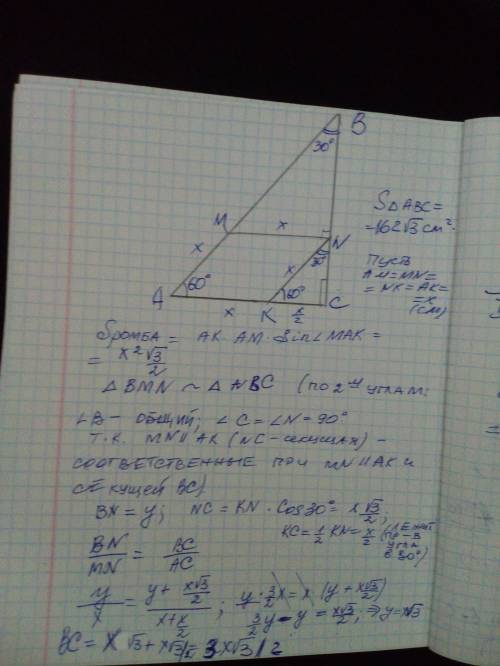 B
30°
S△ABC=
=162√3 см².
M
x
N
x
x
30°
Пусть
AM=MN=
=NK=AK=
=x
(см)
A
60°
60°
C
x
K
x/2
Sромба = AK·AM·sin∠MAK =
= x²√3/2
△BMN ~ △ABC (по 2-м углам:
∠B – общий; ∠C=∠N=90°
т.к. MN∥AK (NC-секущая) –
соответственные при MN∥AK и
секущей BC)
BN=y; NC=KN·cos30°= x√3/2;
KC=1/2 KN=x/2 (лежит
пр-в
угла
в 30°)
BN/MN = BC/AC
y/x = (y+ x√3/2)/(x+x/2); y·3/2x=x(y+x√3/2)
3/2y-y = x√3/2, ⇒y=x√3
BC = x√3+x√3/2=3x√3/2